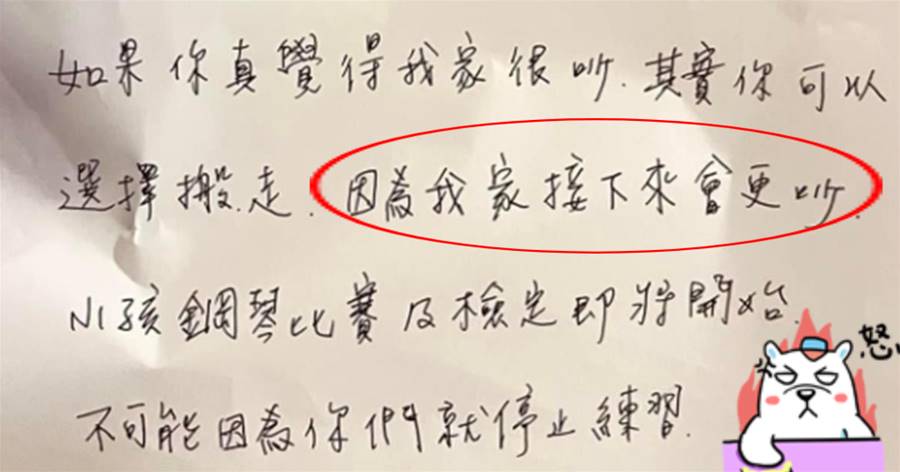 如果你真覺得我家很吵.其實你可以
選擇搬走.因為我家接下來會更吵.
小孩鋼琴比賽及檢定即將開始.
不可能因為你們就停止練習.
怒